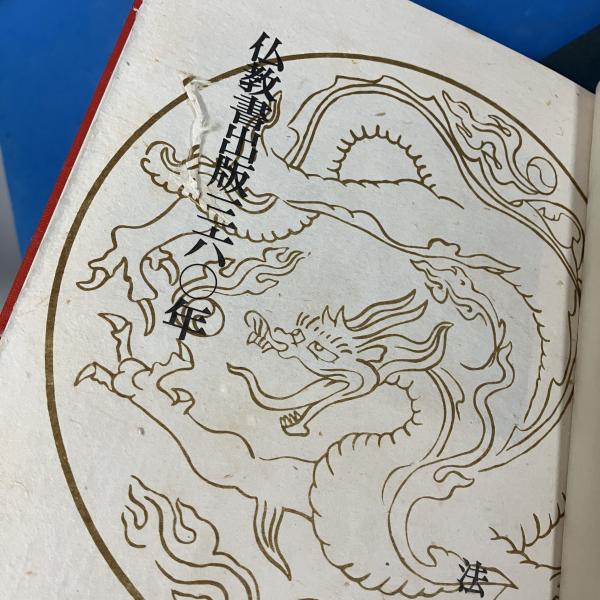 仏教書出版三六〇年
法